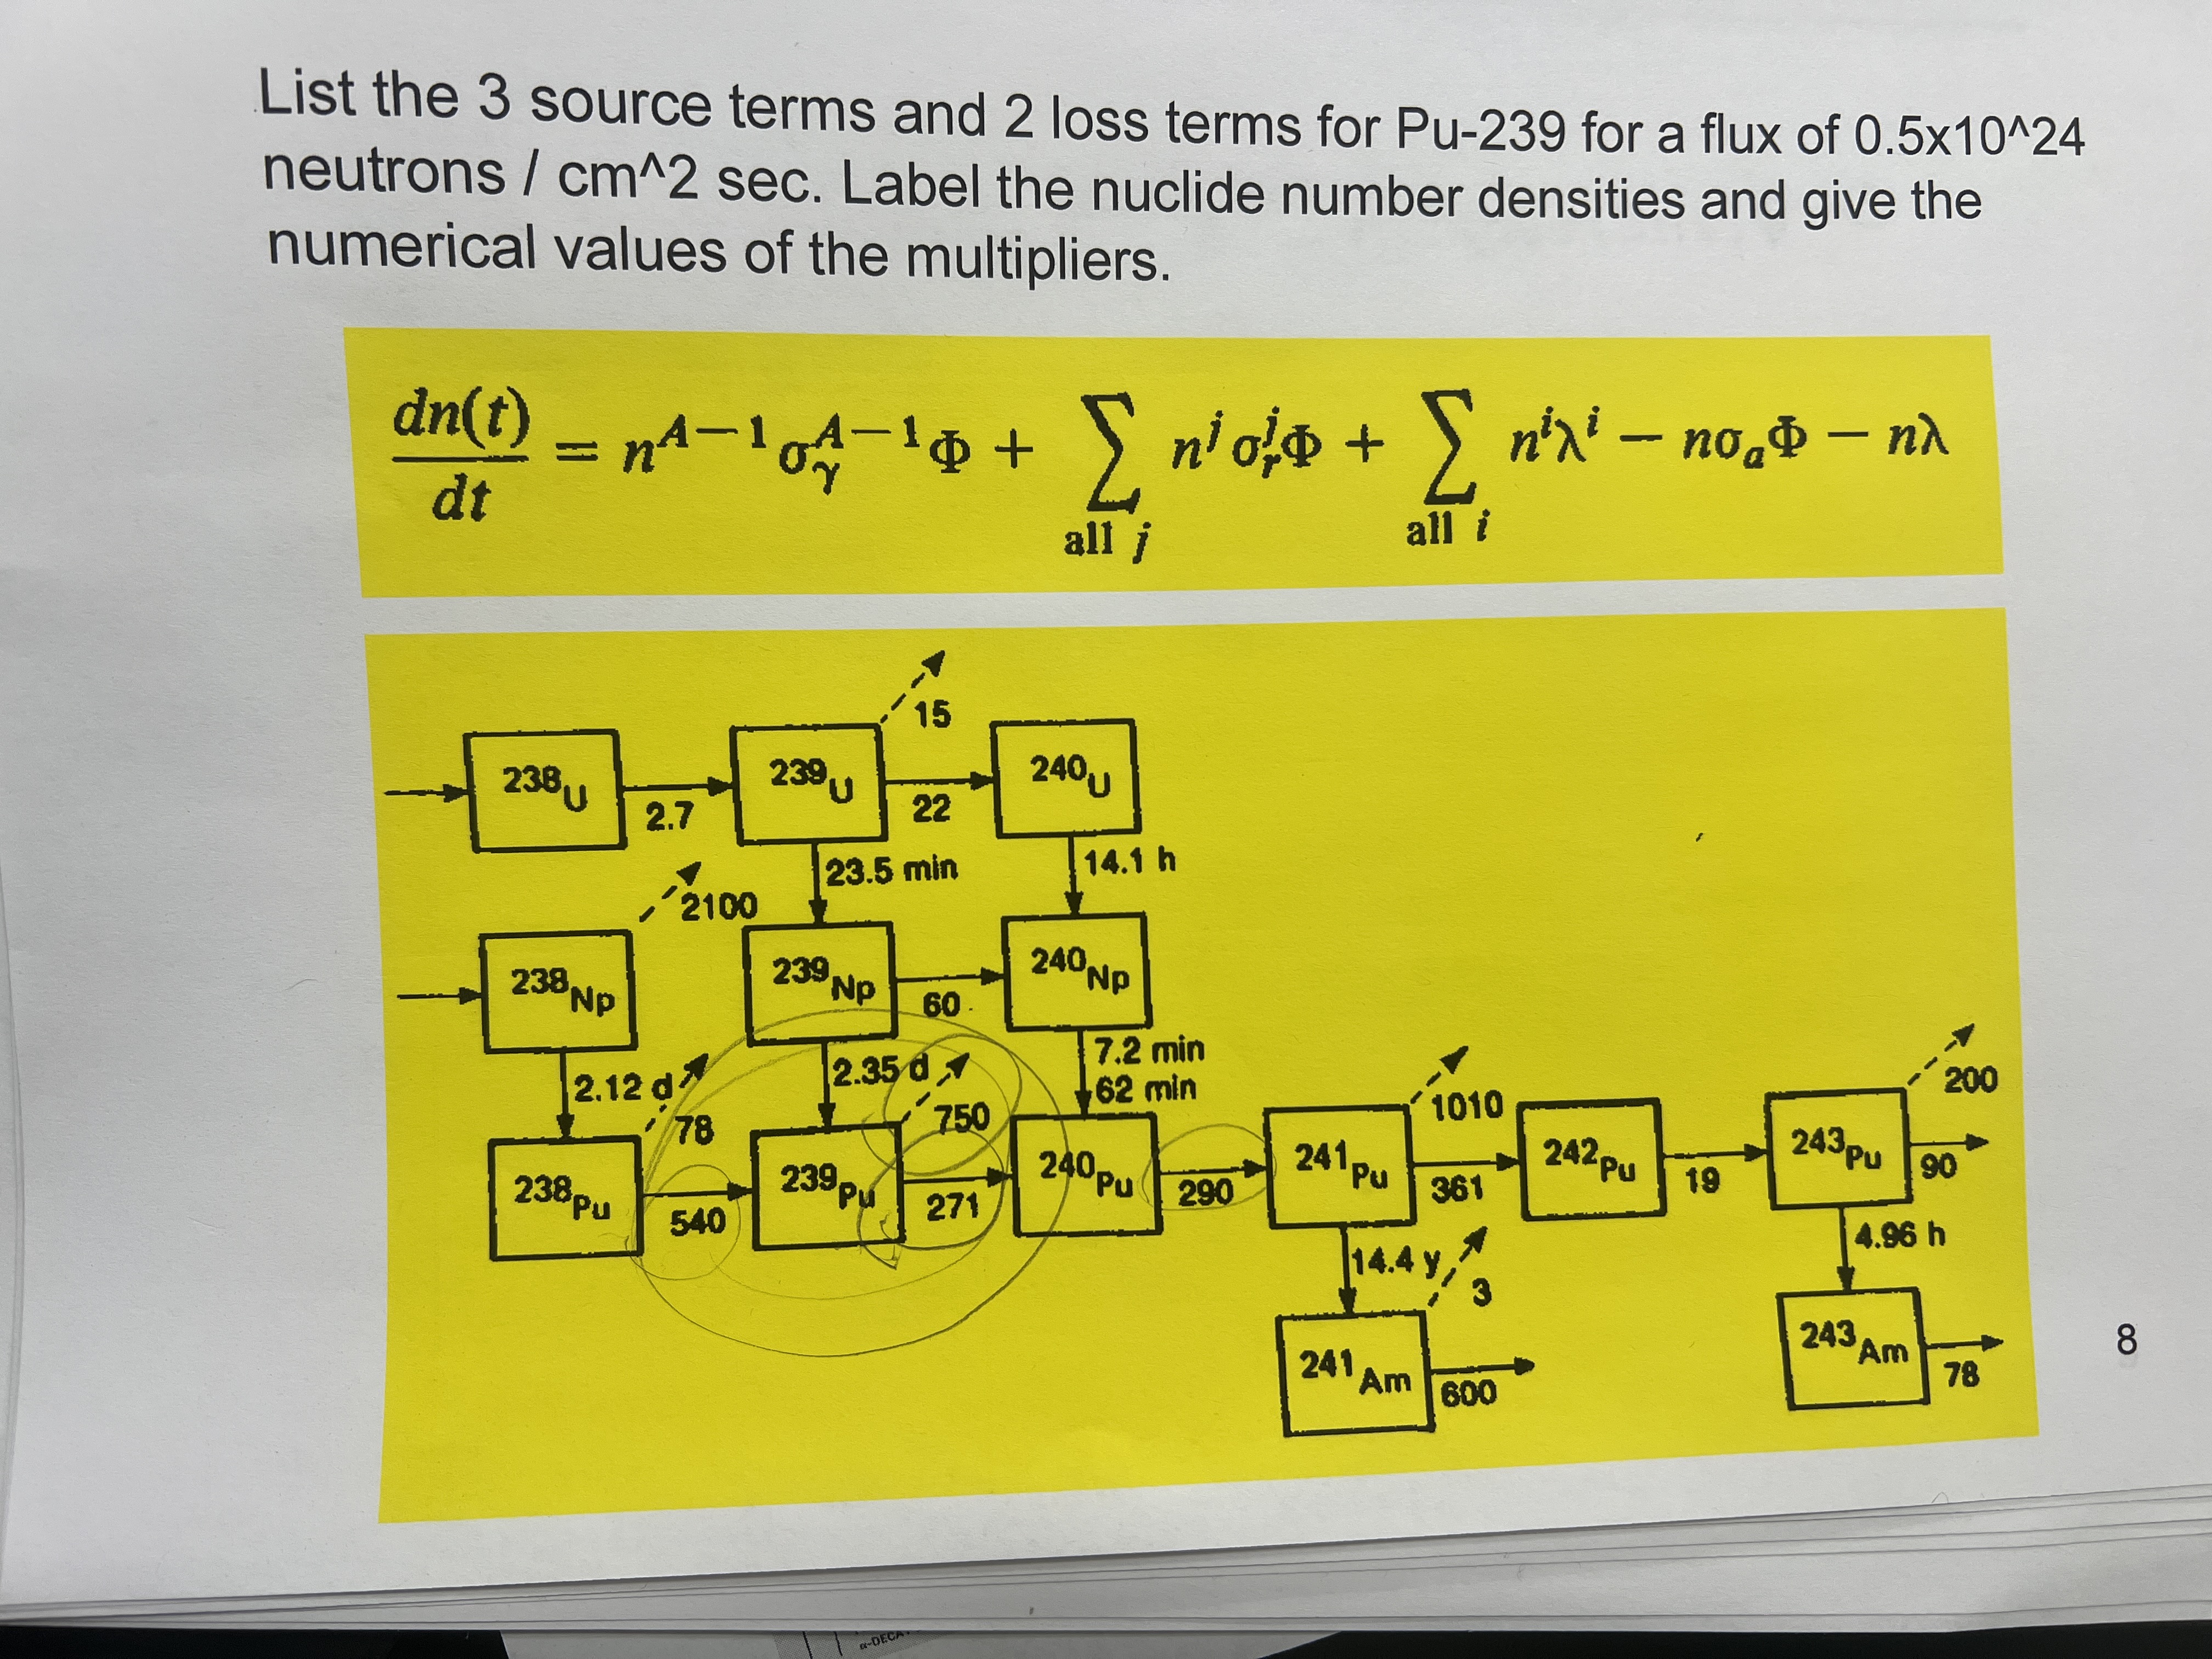 List the 3 source terms and 2 loss terms for Pu-239 for a flux of 0.5x10^24
neutrons / cm^2 sec. Label the nuclide number densities and give the
numerical values of the multipliers.
dn(t)/dt = n^{A-1} σ_γ^{A-1} Φ + Σ_{all j} n^j σ_r^j Φ + Σ_{all i} n^i λ^i − nσ_aΦ − nλ
15
238U
2.7
239U
22
240U
23.5 min
14.1 h
2100
238Np
239Np
60
240Np
2.12 d
78
2.35 d
750
7.2 min
62 min
1010
200
238Pu
540
239Pu
271
240Pu
290
241Pu
361
242Pu
19
243Pu
90
14.4 y
3
4.96 h
241Am
600
243Am
78
8
α-DECA